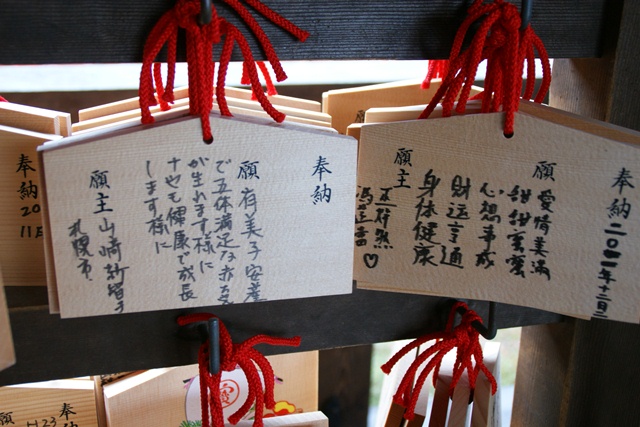 奉納
願 有美子安産
で五体満足な赤ちゃん
が生れます様に
十也も健康で成長
します様に
願主 山崎紗智子
札幌市
奉納 二〇一一年十二月二
願 愛情美滿
甜甜蜜蜜
心想事成
財运亨通
身体健康
願主
奉納 20
11
奉納
願
H23